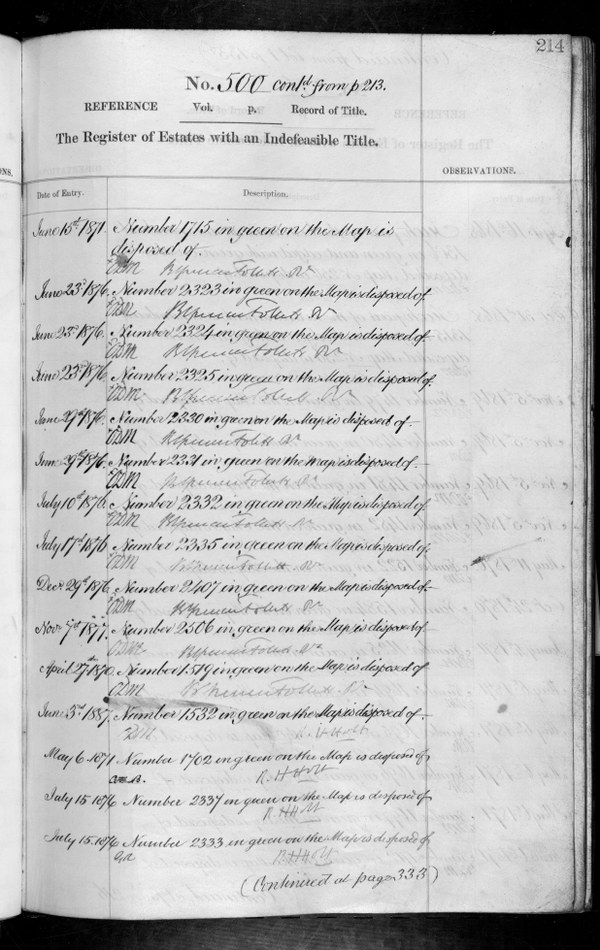 214
No. 500 contd from p 213.
REFERENCE Vol. p. Record of Title.
The Register of Estates with an Indefeasible Title.
OBSERVATIONS.
Date of Entry. Description.
June 15th 1871 Number 1715 in green on the Map is
disposed of.
June 23rd 1876. Number 2323 in green on the Map is disposed of
June 23rd 1876. Number 2324 in green on the Map is disposed of
June 23rd 1876. Number 2325 in green on the Map is disposed of.
June 29th 1876. Number 2330 in green on the Map is disposed of.
June 29th 1876. Number 2331 in green on the Map is disposed of
July 10th 1876. Number 2332 in green on the Map is disposed of
July 17th 1876 Number 2335 in green on the Map is disposed of
Decr 29th 1876. Number 2407 in green on the Map is disposed of
Novr 7th 1877. Number 2506 in green on the Map is disposed of
April 27th 1870. Number 1519 in green on the Map is disposed of
June 3rd 1887. Number 1532 in green on the Map is disposed of
May 6 1871 Number 1702 in green on the Map is disposed of
R. H Holt
July 15 1876 Number 2337 in green on the Map is disposed of
R. H Holt
July 15. 1876 Number 2333 in green on the Map is disposed of
R H Holt
(Continued at page 333)